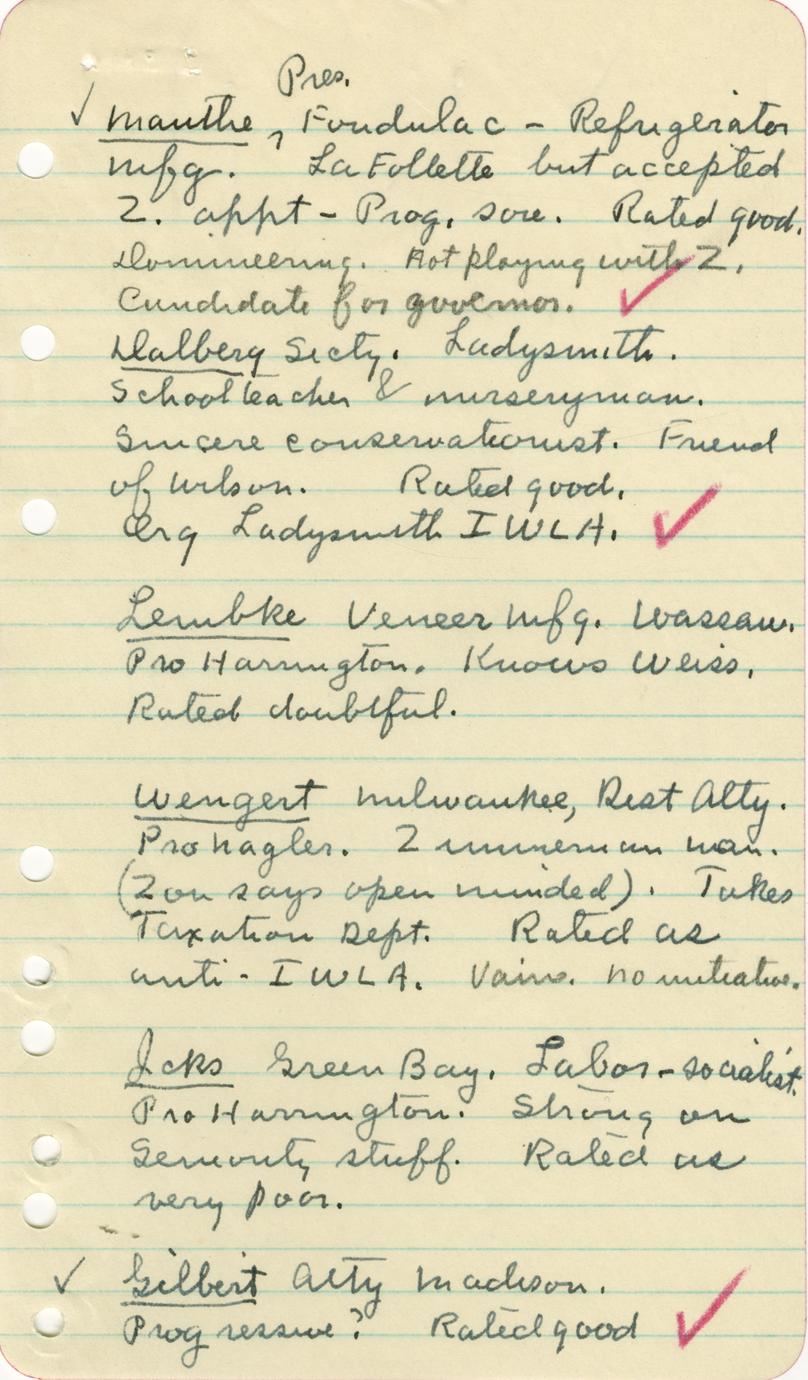 Pres.
✓ Mauthe, Fondulac - Refrigerator
mfg. LaFollette but accepted
Z. appt - Prog. sore. Rated good.
Domineering. Not playing with Z.
Candidate for governor. ✓
Dalberg Secty. Ladysmith.
Schoolteacher & nurseryman.
Sincere conservationist. Friend
of Wilson. Rated good.
Org Ladysmith IWLA. ✓
Lembke Veneer mfg. Wassau.
Pro Harrington. Knows Weiss.
Rated doubtful.
Wengert Milwaukee, Dist Atty.
Pro Nagler. Zimmerman man.
(Zon says open minded). Takes
Taxation Dept. Rated as
anti-IWLA. Vain. No initiative.
Jcks Green Bay. Labor-socialist.
Pro Harrington. Strong on
Seniority stuff. Rated as
very poor.
✓ Gilbert Atty Madison.
Progressive? Rated good ✓